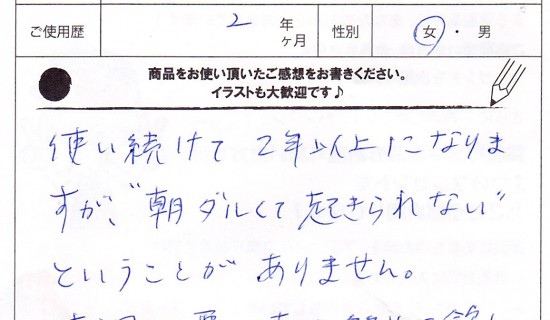 ご使用歴 2 年 ヶ月 性別 女 ・ 男
商品をお使い頂いたご感想をお書きください。
イラストも大歓迎です♪
使い続けて 2年以上になりま
すが、"朝ダルくて起きられない"
ということが ありません。